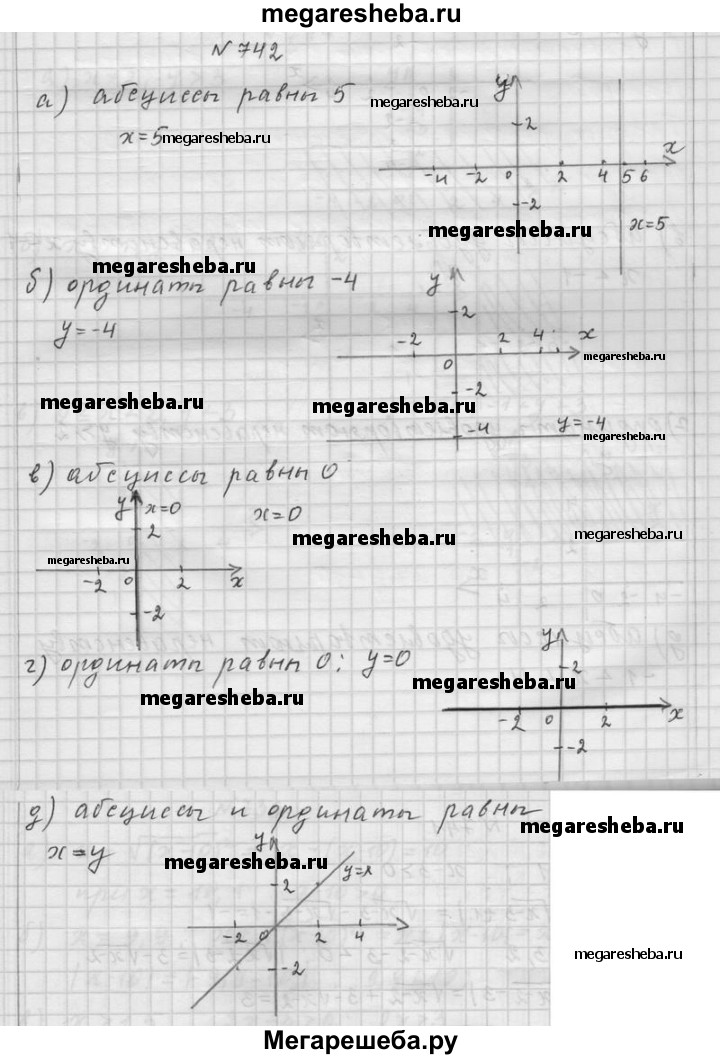 megaresheba.ru
N 742
а) абсциссы равны 5
х=5 megaresheba.ru
megaresheba.ru
y
2
x
-4 -2 0 2 4 5 6
-2
x=5
megaresheba.ru
megaresheba.ru
б) ординаты равны -4
y=-4
y
2
-2 2 4 x
0
megaresheba.ru
-2
megaresheba.ru
megaresheba.ru
-4
y=-4
megaresheba.ru
в) абсциссы равны 0
x=0
y x=0
2
megaresheba.ru
-2 0 2 x
-2
megaresheba.ru
megaresheba.ru
г) ординаты равны 0: y=0
megaresheba.ru
y
2
megaresheba.ru
-2 0 2 x
-2
д) абсциссы и ординаты равны
x=y
megaresheba.ru
megaresheba.ru
y
y=x
2
-2 0 2 4
-2
megaresheba.ru
Мегарешеба.ру